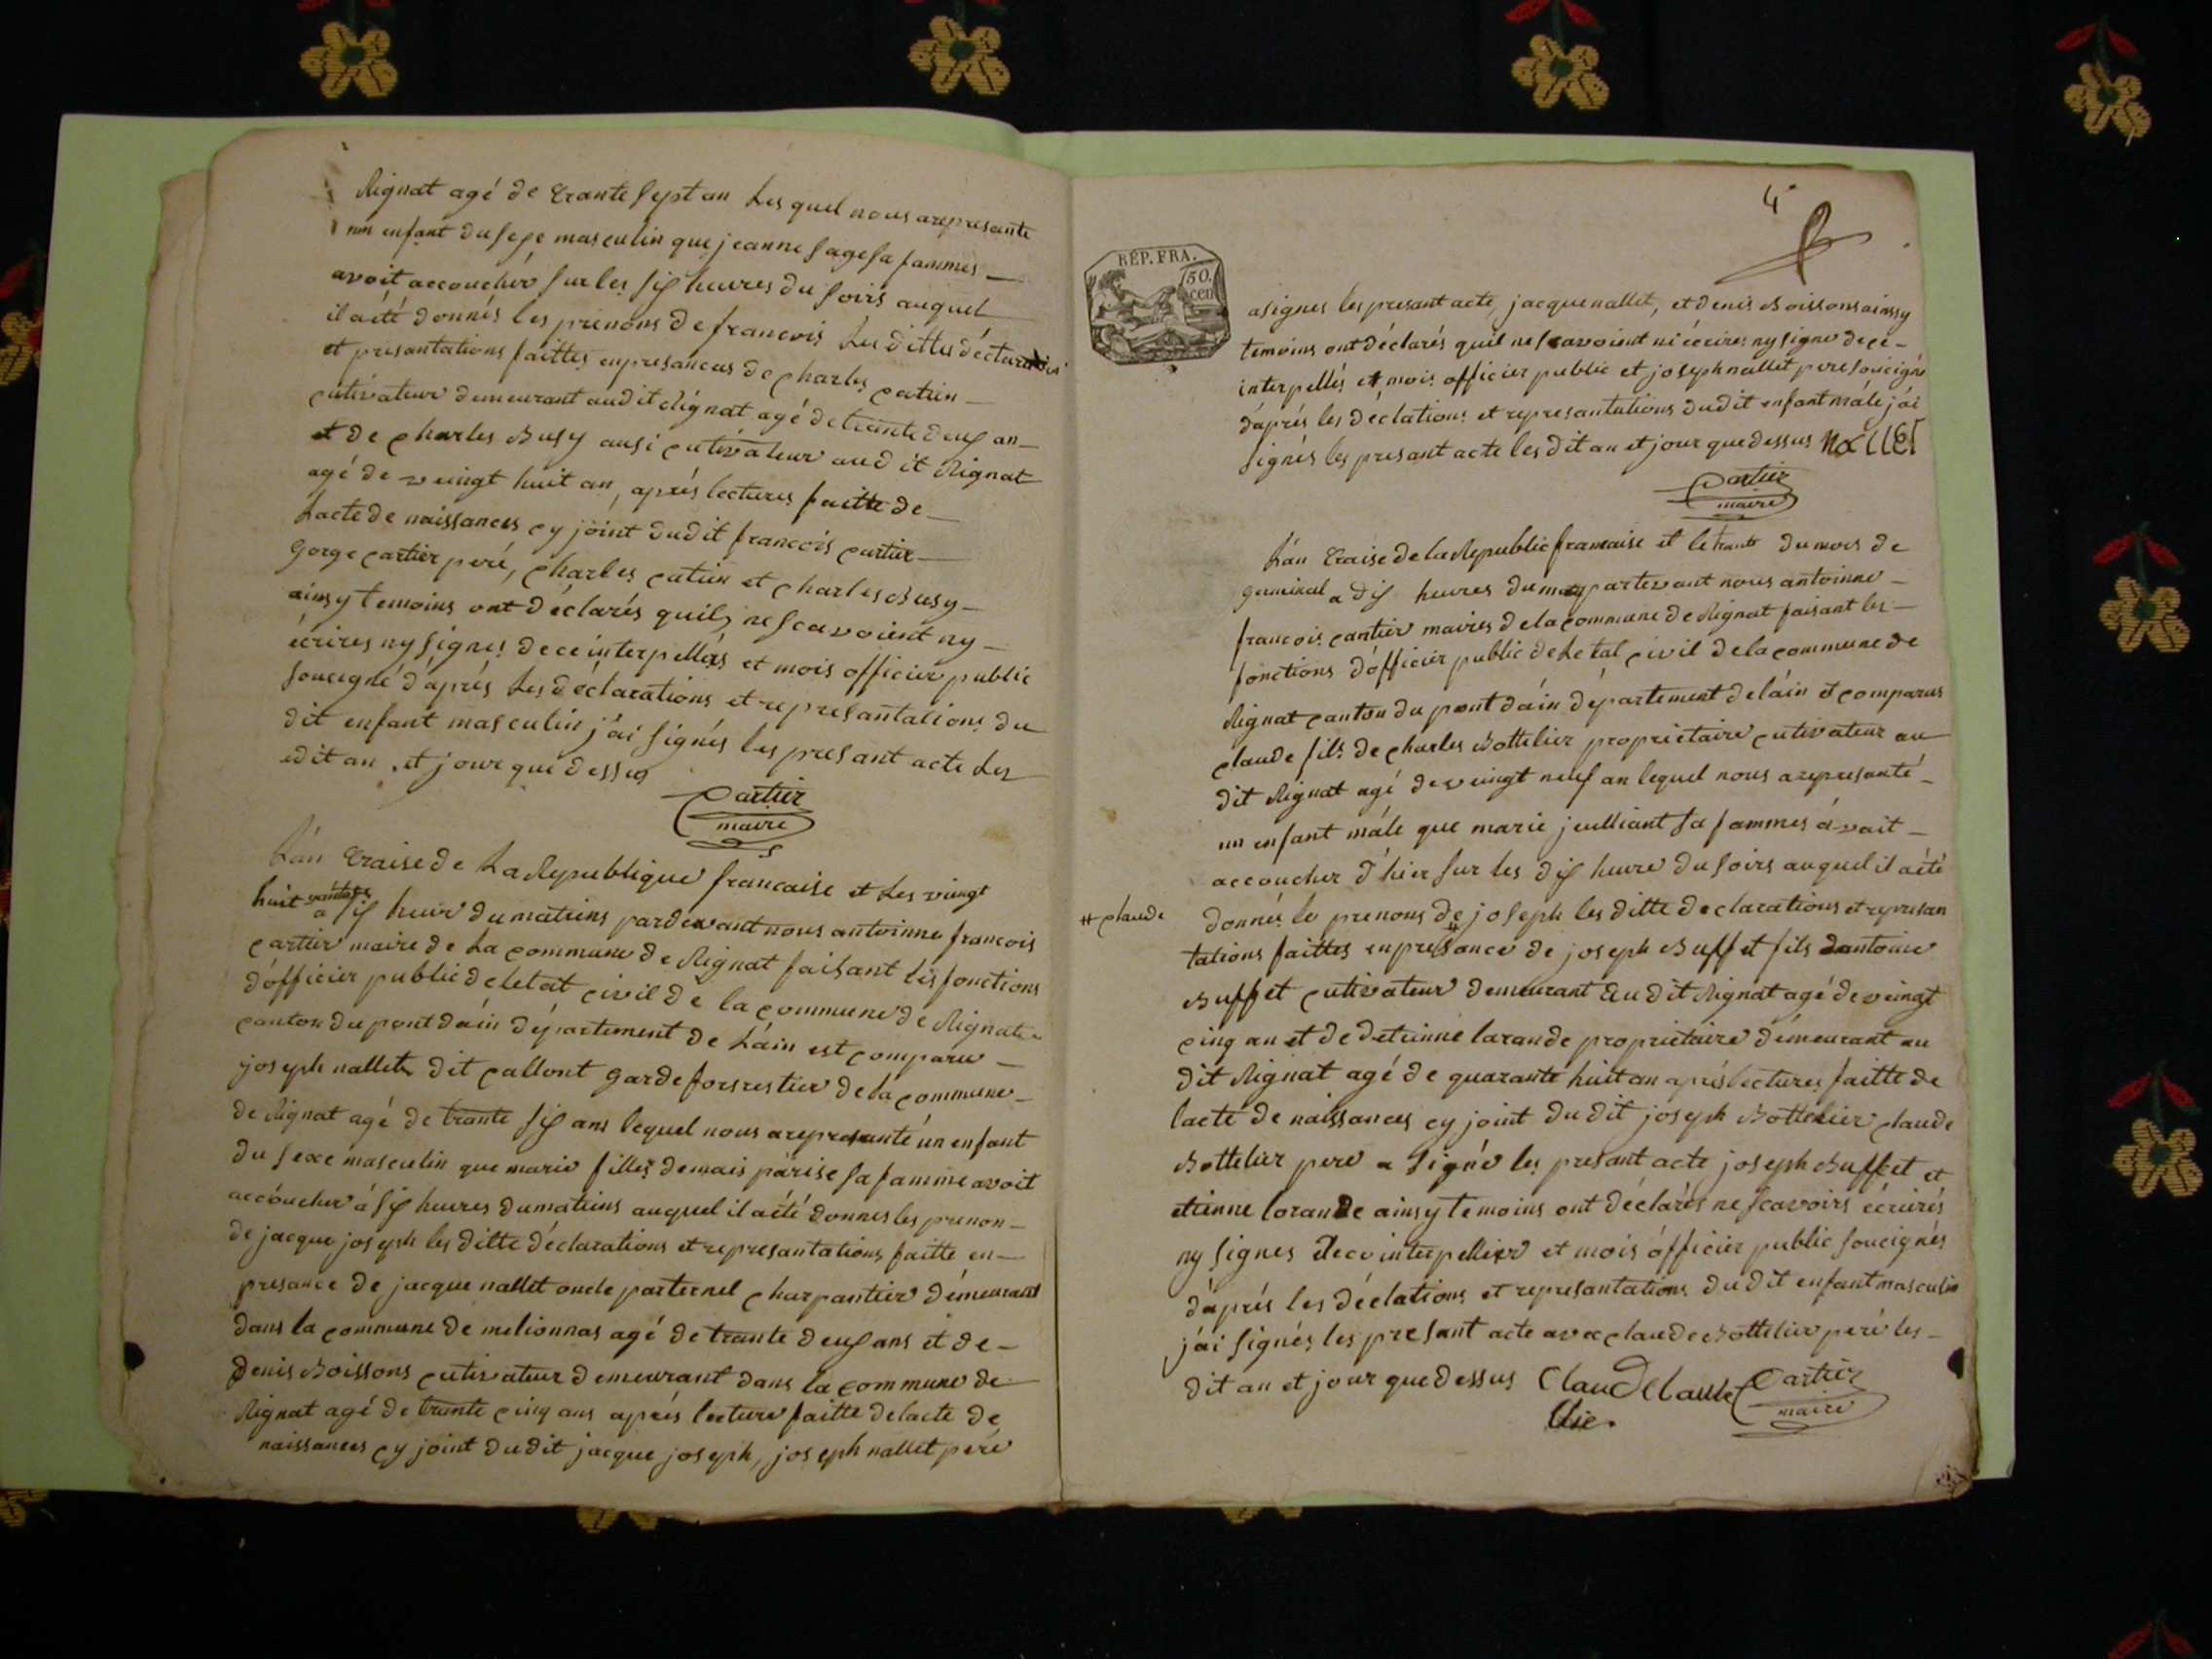 Rignat agé de trante sept an Les quel nous arepresante
un enfant du sexe masculin que jeanne sage sa fammes
avoit accouchér sur les six heures du soirs auquel
il a été donnés les prénoms de francois Les dittes déclarations
et presantations faittes en presances de charles catien
cutivateur demeurant audit Rignat agé de trante deux an
et de charles Busy ausi cutivateur aud it Rignat
agé de veingt huit an, aprés lectures faitte de
Lacte de naissances cy joint dudit francois cartier
Gorge cartier peré, charles catien et charles Busy
ainsy temoins ont déclarés quils ne scavoient ny
écrires ny signes de ce interpellés et mois officier public
soucigné d'aprés Les déclarations et represantations du
dit enfant masculin j'ai signés les presant acte Les
dit an et jour que dessus
Cartier
maire
L'an traise de La Republique francaise et Les vingt
huit vantose a six heure du matiens pardevant nous antoinne francois
cartier maire de La commune de Rignat faisant les fonctions
d'officier public de letat civil de la commune de Rignat
canton du pont dain département de L'ain est comparu
joseph nallet dit callont garde forsrestier de la commune
de Rignat agé de trante six ans lequel nous a represanté un enfant
du sexe masculin que marie filles demais parise sa famme avoit
accoucher à six heures du matiens auquel il a été donnes les prenon
de jacque joseph les ditte déclarations et represantations faitte en
presance de jacque nallet oncle parternel charpantier démeurant
dans la commune de melionnas agé de trante deux ans et de
denis Boissons cutivateur demeurant dans la commune de
Rignat agé de trante cinq ans aprés lecture faitte de lacte de
naissances cy joint du dit jacque joseph, joseph nallet peré
4
RÉP. FRA.
50.
cen
a signes les presant acte, jacque nallet, et denis Boissons ainsy
temoins ont déclarés quil ne scavoient ni écrires ny signe de ce
interpellés et mois officier public et joseph nallet pere soucigné
d'aprés les déclations et represantations dudit enfant mâle j'ai
signés les presant acte les dit an et jour que dessus nallet
Cartier
maire
L'an traise de la Republic francaise et le trante du mois de
germinal a dix heures du matien partevant nous antoinne
francois cartier maires de la commune de Rignat faisant les
fonctions d'officier public de Letat civil de la commune de
Rignat canton du pont d'ain département de l'ain est comparus
claude fils de charles Bottelier proprietaire cutivateur au
dit Rignat agé de veingt neuf an lequel nous a represanté
un enfant mâle que marie juilliant sa fammes avait
accoucher d'hier sur les dix heure du soirs auquel il a été
# claude
donnés le prenons de # joseph les ditte declarations et represan
tations faittes en presance de joseph Buffet fils dantoine
Buffet cutivateur demeurant audit Rignat agé de veingt
cinq an et de detienne larande proprietaire démeurant au
dit Rignat agé de quarante huit an aprés lectures faitte de
lacte de naissances cy joint du dit joseph Bottelier claude
Bottelier pere a signé les presant acte joseph Buffet et
etienne lorande ainsy temoins ont déclarés ne scavoirs écrires
ny signes de ce interpeller et mois officier public soucignés
d'aprés les déclations et represantations du dit enfant masculin
j'ai signés les presant acte avec claude Bottelier peré les
dit an et jour que dessus
Cartier
maire